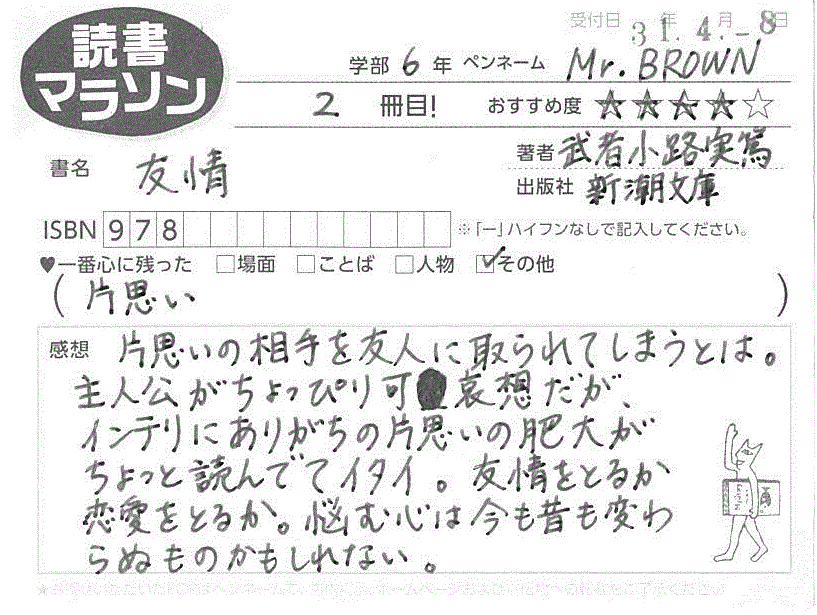 読書
マラソン
受付日 31年4月-8日
学部 6 年 ペンネーム Mr. BROWN
2 冊目! おすすめ度 ★★★★☆
書名 友情
著者 武者小路実篤
出版社 新潮文庫
ISBN 978 ※「ー」ハイフンなしで記入してください。
♥一番心に残った □場面 □ことば □人物 ☑その他
(片思い)
感想 片思いの相手を友人に取られてしまうとは。
主人公がちょっぴり可哀想だが、
インテリにありがちの片思いの肥大が
ちょっと読んでてイタイ。友情をとるか
恋愛をとるか。悩む心は今も昔も変わ
らぬものかもしれない。